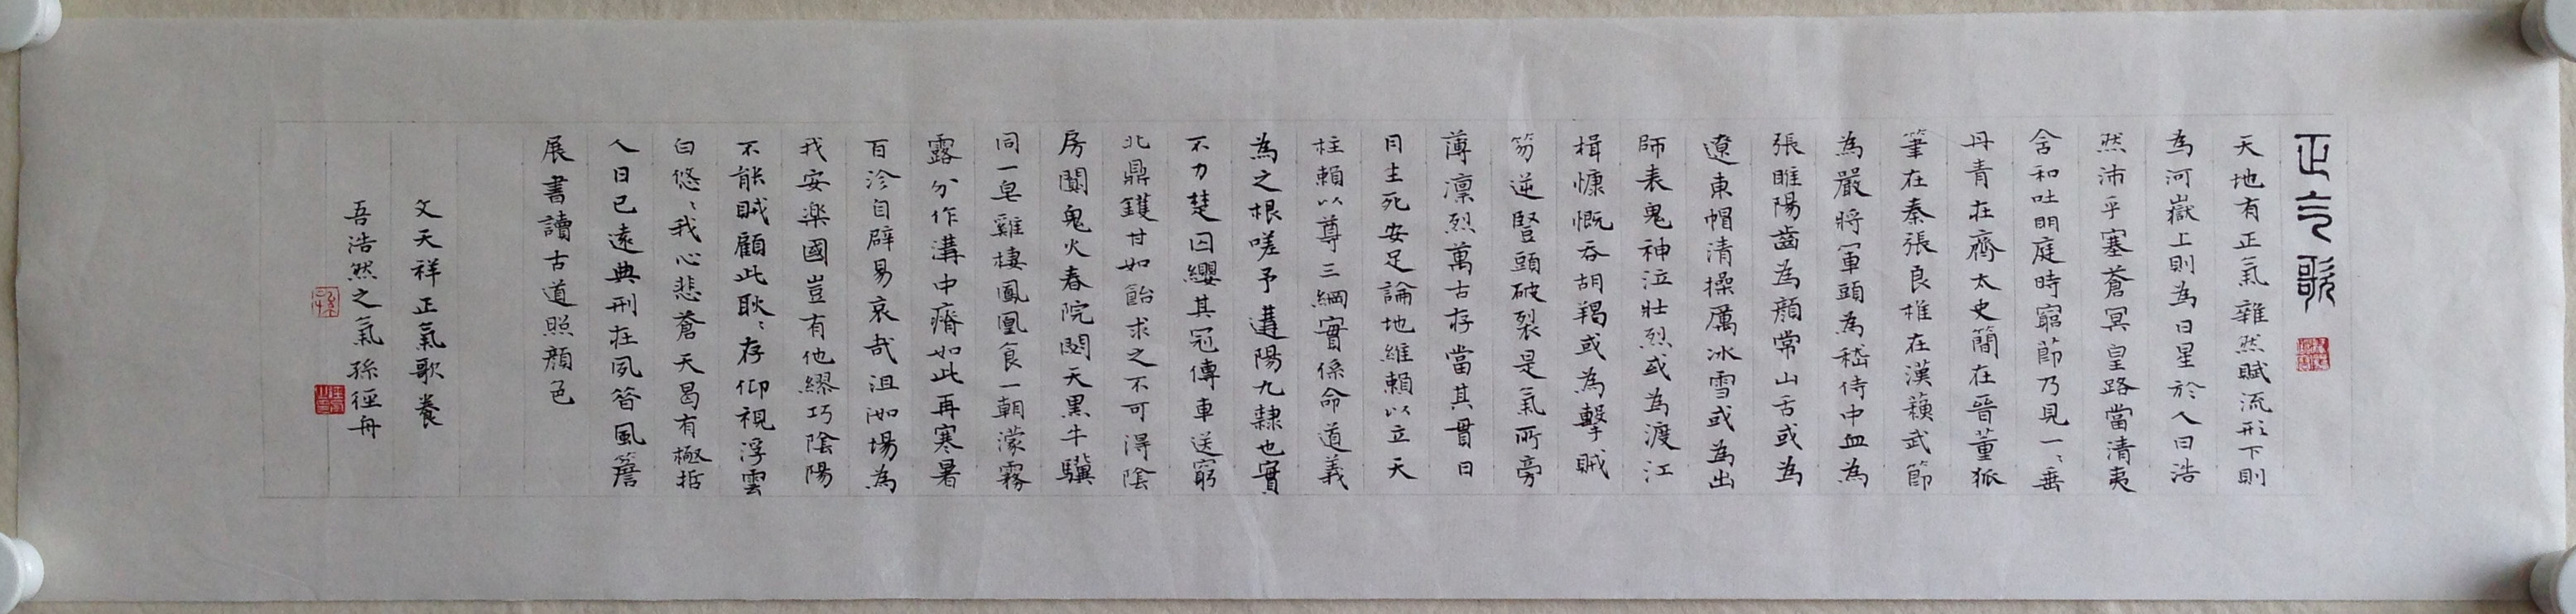 正气歌
天地有正氣雜然賦流形下則
為河嶽上則為日星於人曰浩
然沛乎塞蒼冥皇路當清夷
含和吐明庭時窮節乃見一、垂
丹青在齊太史簡在晉董狐
筆在秦張良椎在漢蘇武節
為嚴將軍頭為嵇侍中血為
張睢陽齒為顏常山舌或為
遼東帽清操厲冰雪或為出
師表鬼神泣壯烈或為渡江
楫慷慨吞胡羯或為擊賊
笏逆豎頭破裂是氣所旁
薄凜烈萬古存當其貫日
月生死安足論地維賴以立天
柱賴以尊三綱實係命道義
為之根嗟予遘陽九隸也實
不力楚囚纓其冠傳車送窮
北鼎鑊甘如飴求之不可得陰
房闃鬼火春院閟天黑牛驥
同一皂雞棲鳳凰食一朝濛霧
露分作溝中瘠如此再寒暑
百沴自辟易哀哉沮洳場為
我安樂國豈有他繆巧陰陽
不能賊顧此耿、存仰視浮雲
白悠、我心悲蒼天曷有極哲
人日已遠典刑在夙昔風簷
展書讀古道照顏色
文天祥正氣歌養
吾浩然之氣 孫徑舟